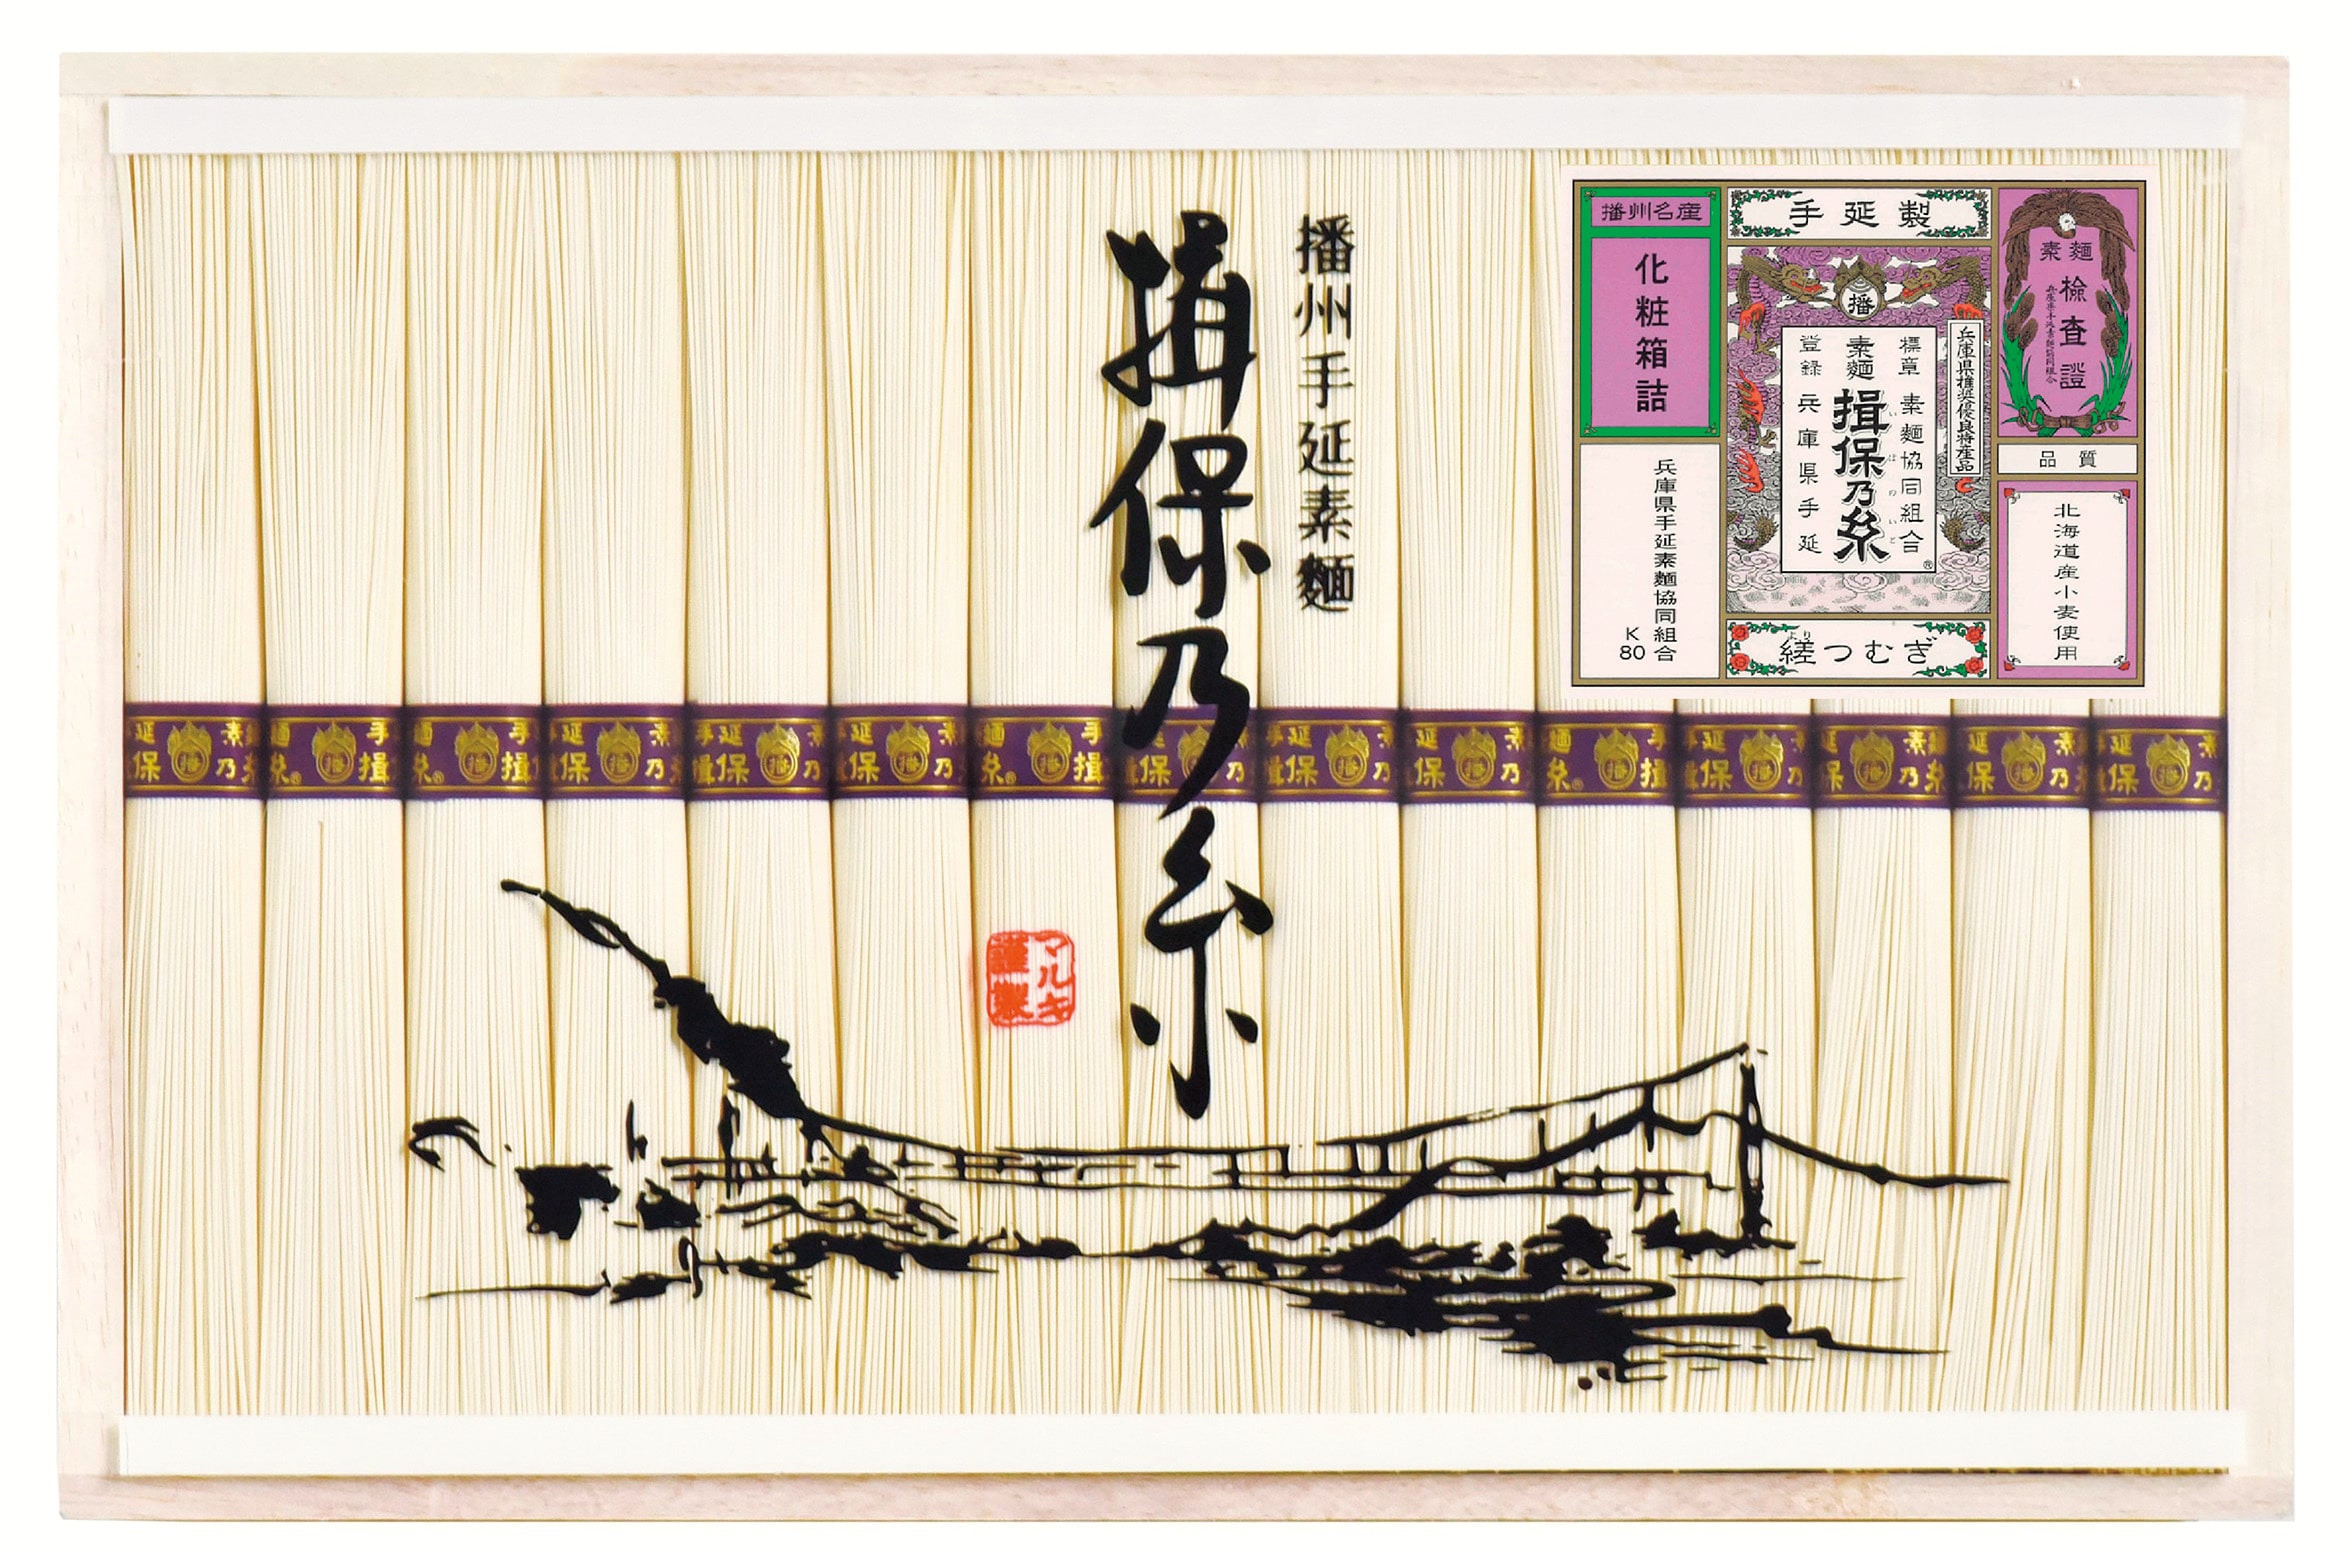 播州手延素麺
揖保乃糸
マルキ
謹製
播州名産
化粧箱詰
兵庫県手延素麺協同組合
K
80
手延製
播
標章
登録
素麺
揖保乃糸
いぼのいと
素麺協同組合
兵庫県手延
兵庫県推奨優良特産品
®
より
縒つむぎ
素麺
検査證
兵庫県手延素麺協同組合
品質
北海道産小麦使用
手延素麺
揖保乃糸®
播